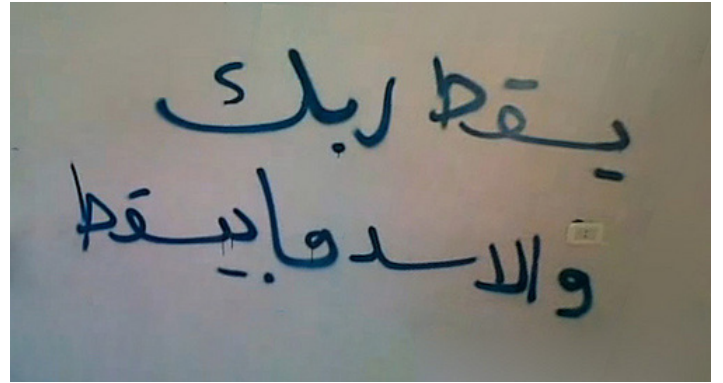 يسقط ربك
والاسد مابيسقط